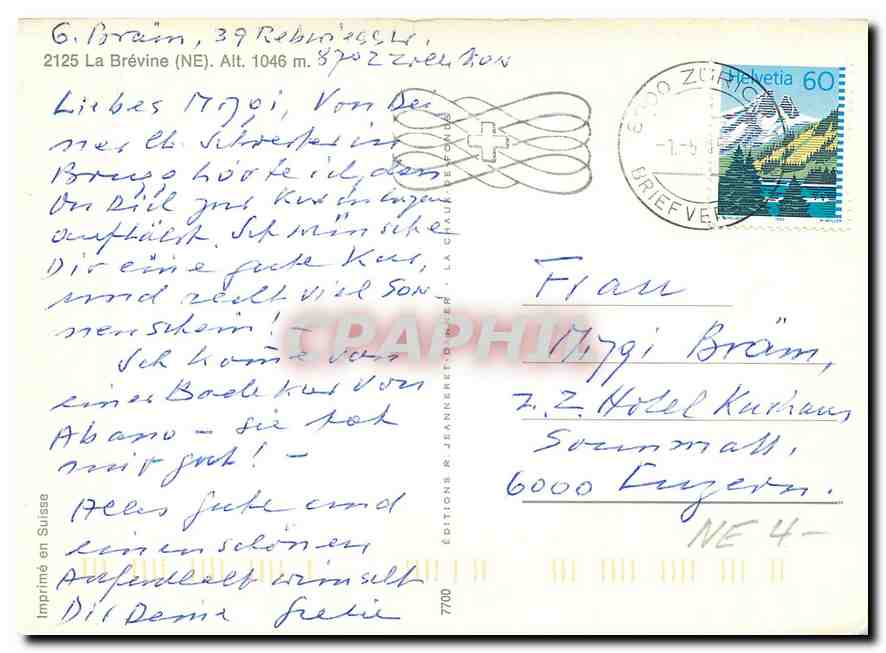 G. Bräm, 39 Rebwiesstr.
2125 La Brévine (NE). Alt. 1046 m. 8702 Zollikon
Liebes Miggi, Von Dei
ner lb. Schwester in
Brugg hörte ich, dass
Du Dich zur Kur in Luzern
aufhälst. Ich wünsche
Dir eine gute Kur,
und recht viel Son
nenschein! -
Ich komme von
einer Badekur von
Abano - sie tat
mir gut! -
Alles gute und
einen schönen
Aufenthalt wünscht
Dir Deine
Imprimé en Suisse
7700 ÉDITIONS R. JEANNERET-DINNER - LA CHAUX-DE-FONDS
ZÜRICH
BRIEFVER
Helvetia 60
Frau
Miggi Bräm,
z.Z. Hotel Kurhaus
Sonnmatt,
6000 Luzern.
NE 4-
CPAPHIL